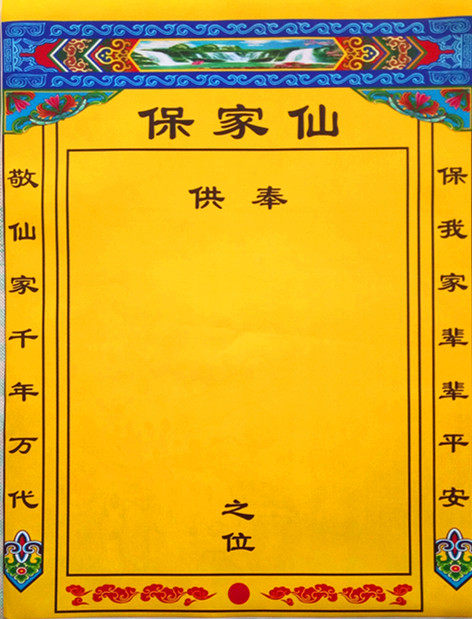 保家仙
供奉
之位
敬仙家千年万代
保我家辈辈平安